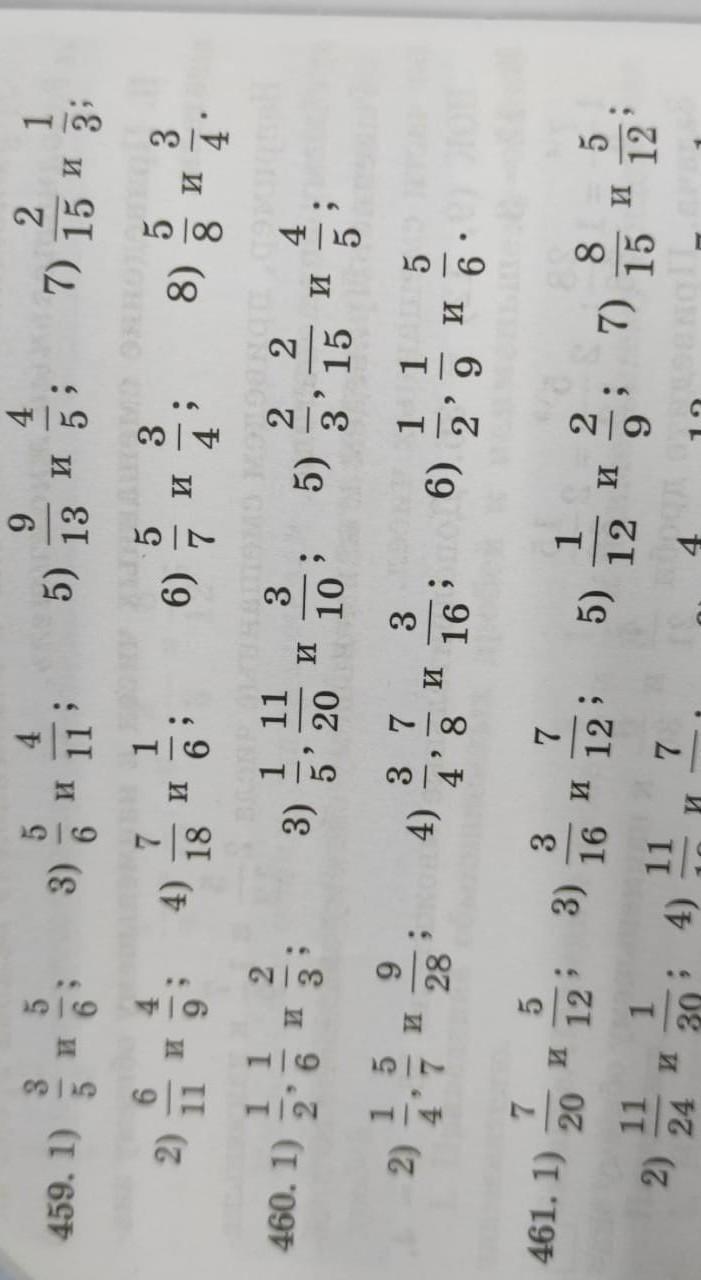 459. 1) 3/5 и 5/6; 3) 5/6 и 4/11; 5) 9/13 и 4/5; 7) 2/15 и 1/3;
2) 6/11 и 4/9; 4) 7/18 и 1/6; 6) 5/7 и 3/4; 8) 5/8 и 3/4.
460. 1) 1/2, 1/6 и 2/3; 3) 1/5, 11/20 и 3/10; 5) 2/3, 2/15 и 4/5;
2) 1/4, 5/7 и 9/28; 4) 3/4, 7/8 и 3/16; 6) 1/2, 1/9 и 5/6.
461. 1) 7/20 и 5/12; 3) 3/16 и 7/12; 5) 1/12 и 2/9; 7) 8/15 и 5/12;
2) 11/24 и 1/30; 4) 11 и 7 4